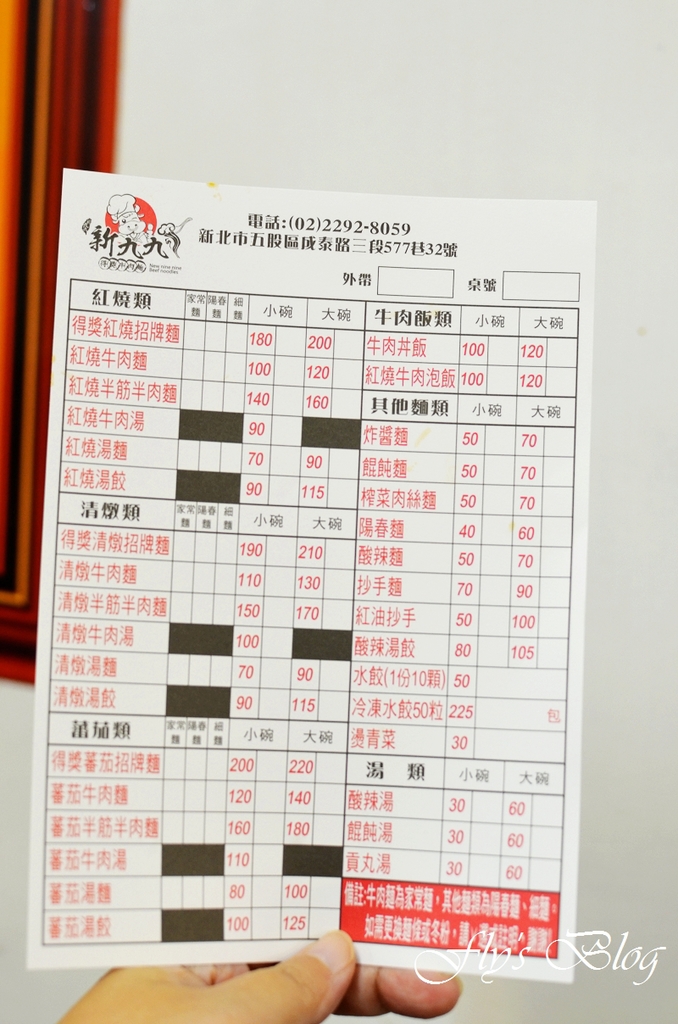 新九九
得獎牛肉麵
New nine nine
Beef noodles
電話:(02)2292-8059
新北市五股區成泰路三段577巷32號
外帶 桌號
紅燒類 家常麵 陽春麵 細麵 小碗 大碗
得獎紅燒招牌麵 180 200
紅燒牛肉麵 100 120
紅燒半筋半肉麵 140 160
紅燒牛肉湯 90
紅燒湯麵 70 90
紅燒湯餃 90 115
清燉類 家常麵 陽春麵 細麵 小碗 大碗
得獎清燉招牌麵 190 210
清燉牛肉麵 110 130
清燉半筋半肉麵 150 170
清燉牛肉湯 100
清燉湯麵 70 90
清燉湯餃 90 115
蕃茄類 家常麵 陽春麵 細麵 小碗 大碗
得獎蕃茄招牌麵 200 220
蕃茄牛肉麵 120 140
蕃茄半筋半肉麵 160 180
蕃茄牛肉湯 110
蕃茄湯麵 80 100
蕃茄湯餃 100 125
牛肉飯類 小碗 大碗
牛肉丼飯 100 120
紅燒牛肉泡飯 100 120
其他麵類 小碗 大碗
炸醬麵 50 70
餛飩麵 50 70
榨菜肉絲麵 50 70
陽春麵 40 60
酸辣麵 50 70
抄手麵 70 90
紅油抄手 50 100
酸辣湯餃 80 105
水餃(1份10顆) 50
冷凍水餃50粒 225 包
燙青菜 30
湯類 小碗 大碗
酸辣湯 30 60
餛飩湯 30 60
貢丸湯 30 60
備註:牛肉麵為家常麵，其他麵類為陽春麵、細麵。
如需更換麵條或冬粉，
Fly's Blog